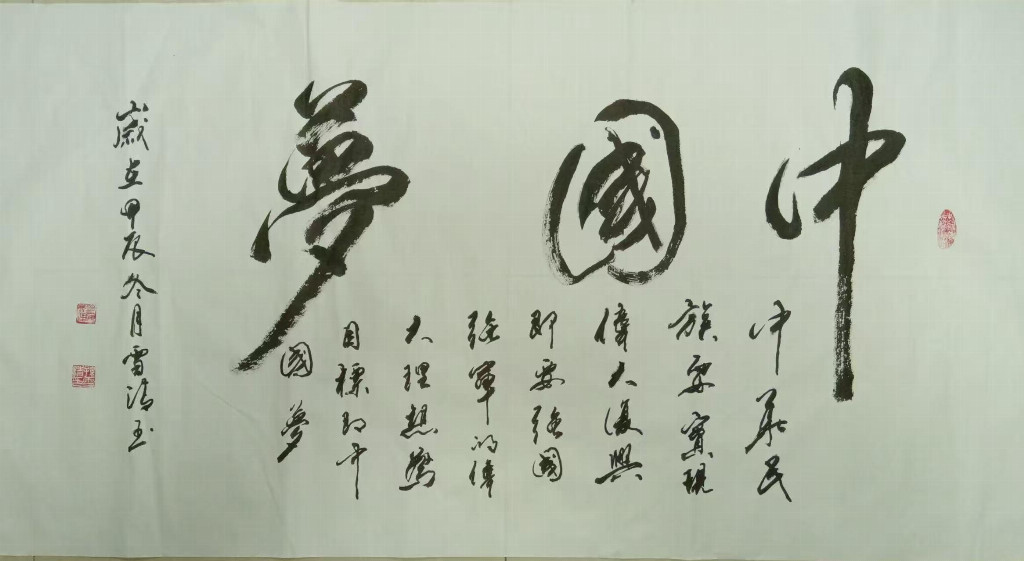 中國夢
中華民
族要實現
偉大復興
即要強國
強軍的偉
大理想為
目標的中
國夢
歲在甲辰冬月雷玉